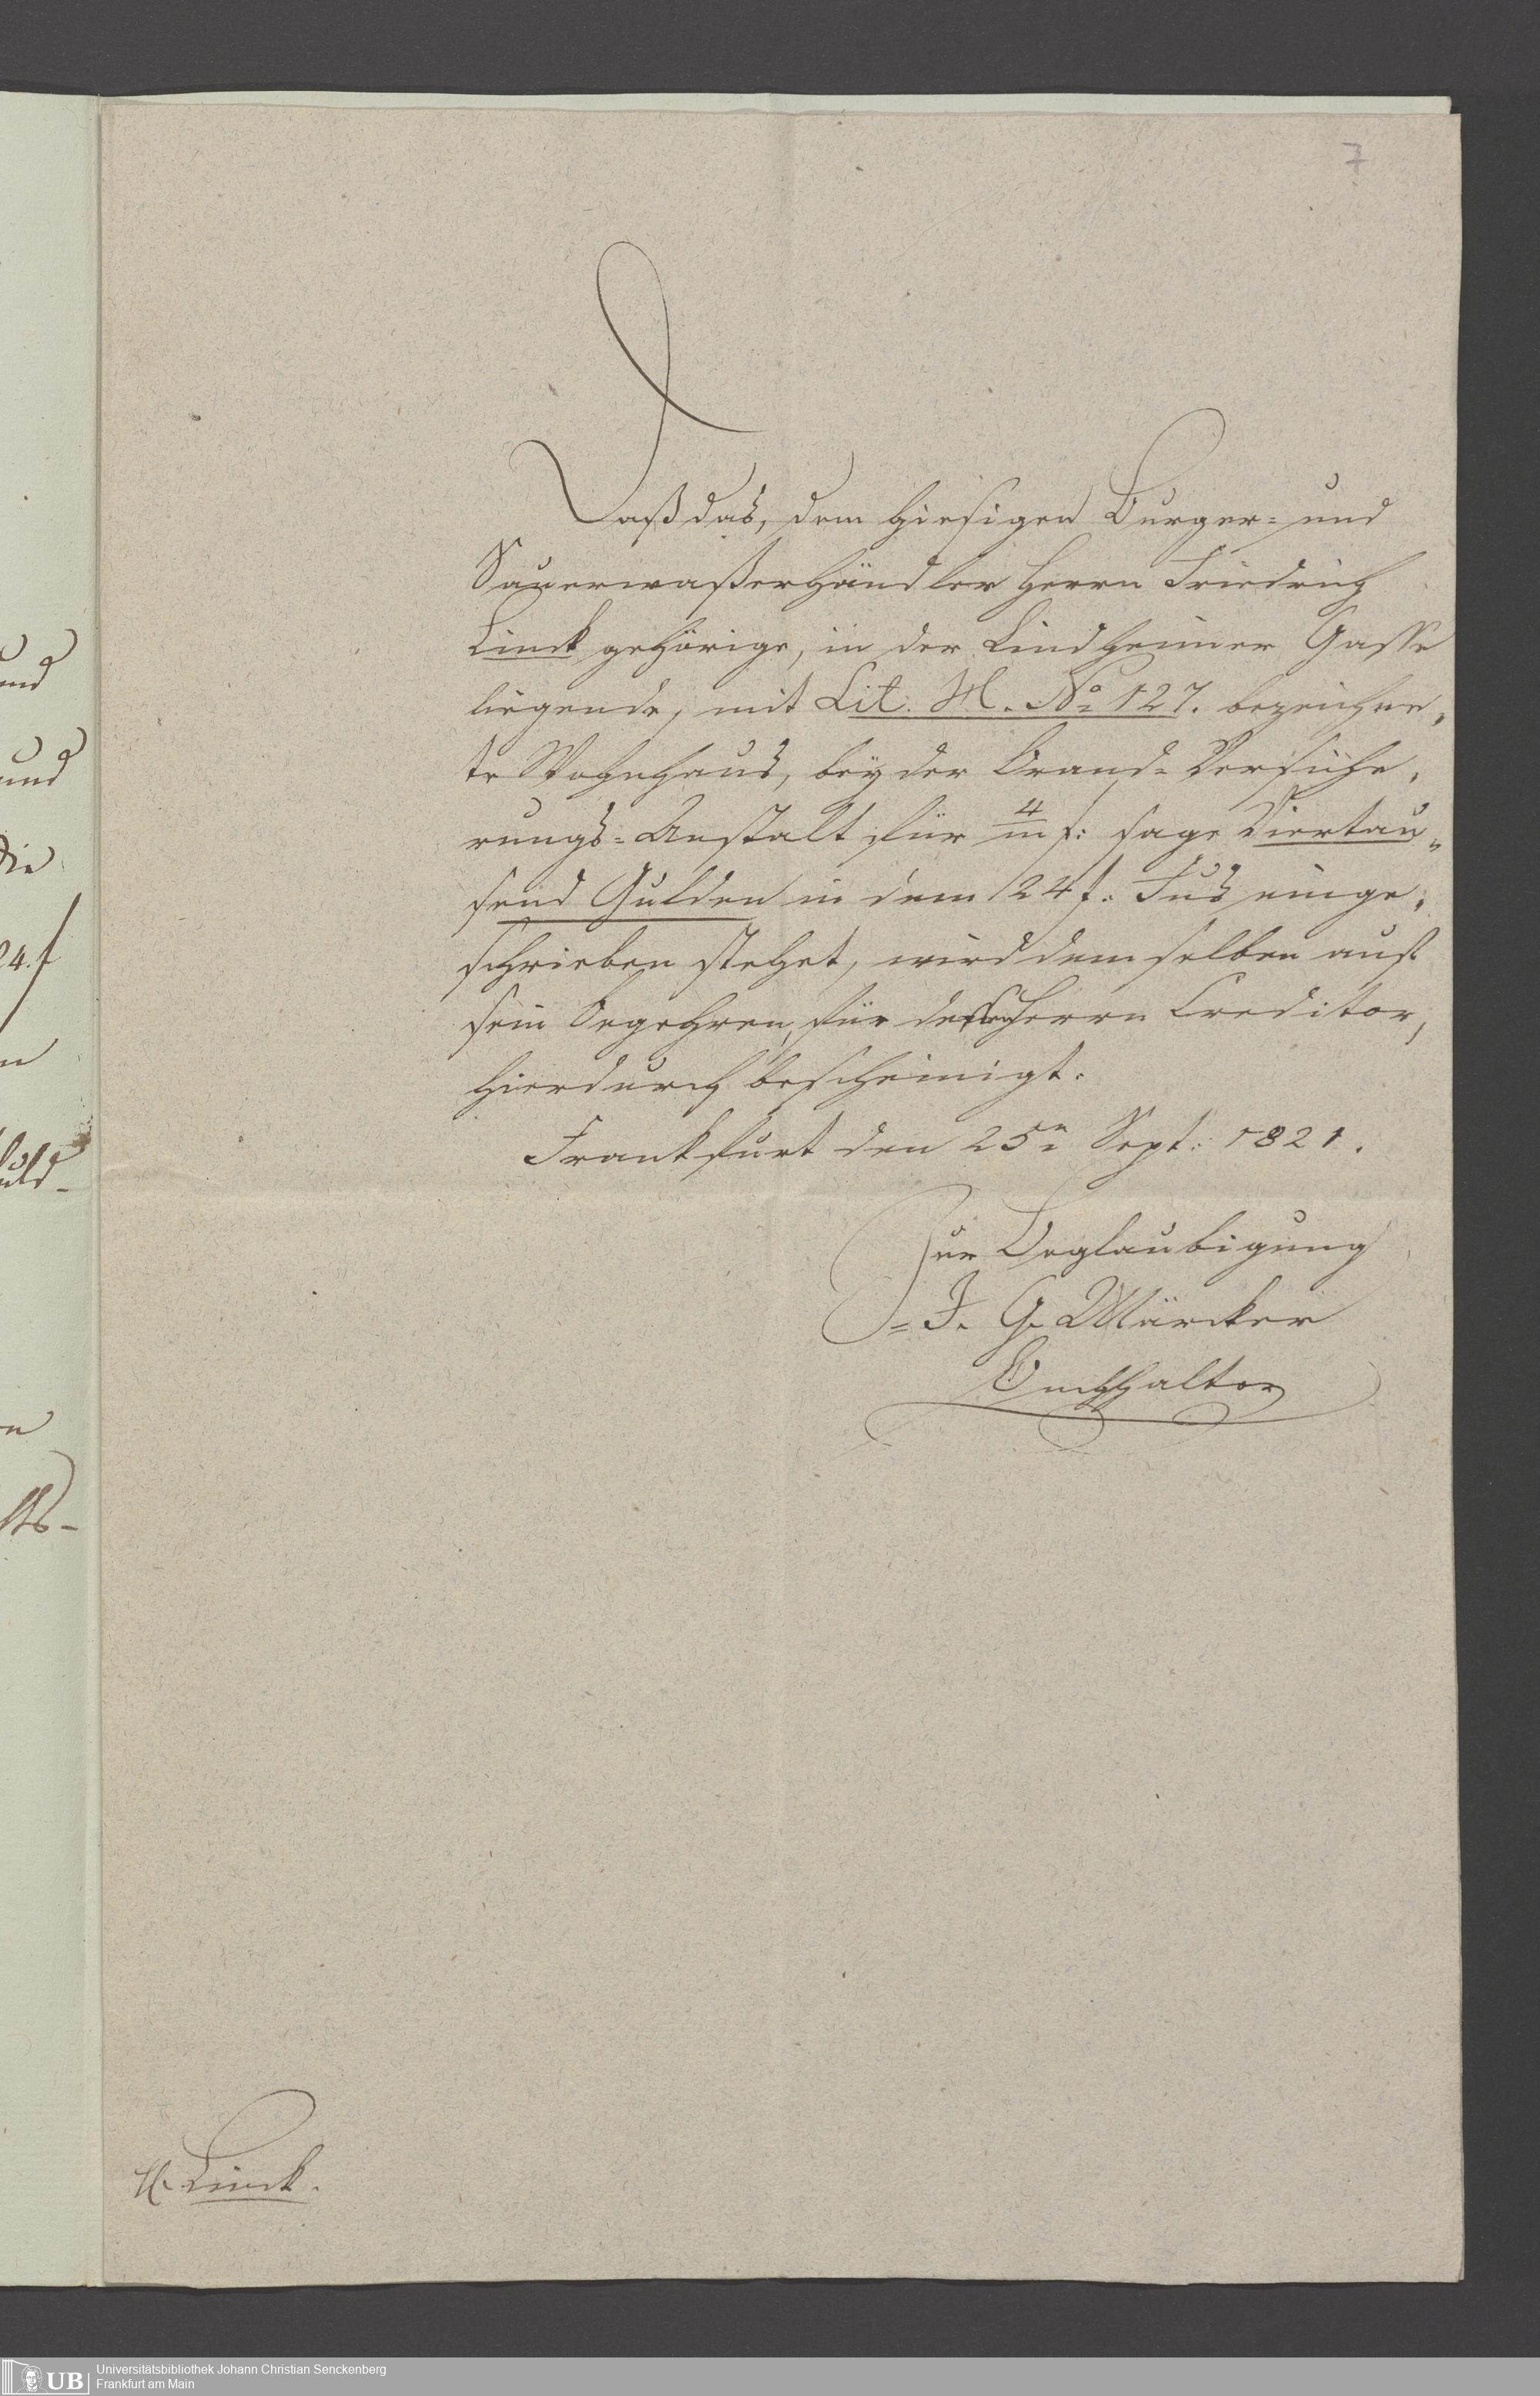 7
Daß das, dem hiesigen Burger= und
Sauerwaßerhändler Herrn Friedrich
Linck gehörige, in der Lindheimer Gasse
liegende, mit Lit. M. No 127. bezeichne,
te Wohnhaus, bey der Brand= Versiche,
rungs=Anstalt für 4/m f: sage Viertau„
send Gulden in dem 24 f. Fus einge,
schrieben stehet, wird demselben auf
sein Begehren, für dessen Herrn Creditor,
hierdurch bescheinigt.
Frankfurt den 25n Sept: 1821.
Zur Beglaubigung
J. G. Märcker
Buchhalter
H. Linck.
und
und
die
24. f
uld-
UB Universitätsbibliothek Johann Christian Senckenberg
Frankfurt am Main